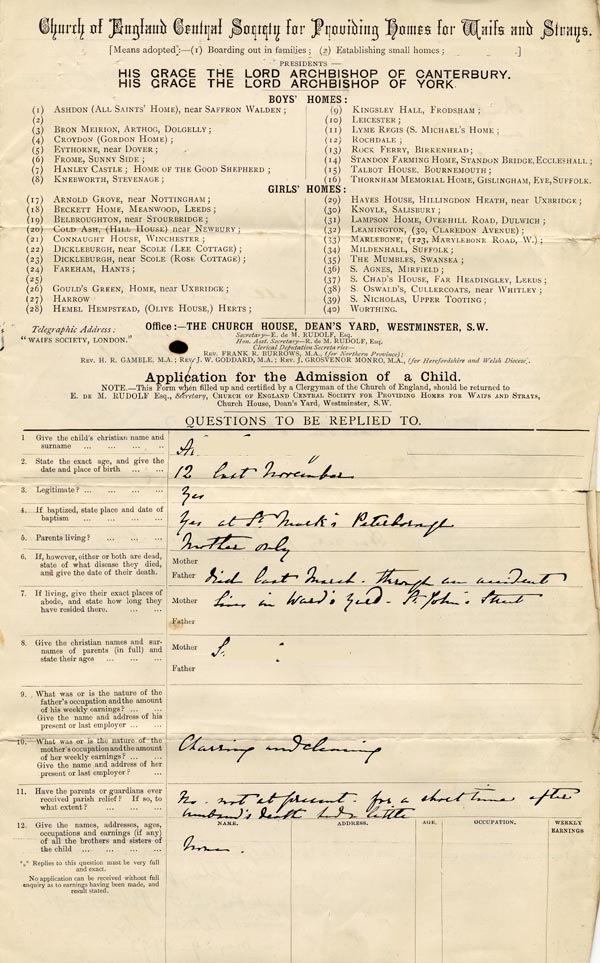 Church of England Central Society for Providing Homes for Waifs and Strays.
[Means adopted:—(1) Boarding out in families; (2) Establishing small homes; ]
PRESIDENTS —
HIS GRACE THE LORD ARCHBISHOP OF CANTERBURY.
HIS GRACE THE LORD ARCHBISHOP OF YORK
BOYS' HOMES:
(1) Ashdon (All Saints' Home), near Saffron Walden;
(2)
(3) Bron Meirion, Arthog, Dolgelly;
(4) Croydon (Gordon Home);
(5) Eythorne, near Dover;
(6) Frome, Sunny Side;
(7) Hanley Castle; Home of the Good Shepherd;
(8) Knebworth, Stevenage;
(9) Kingsley Hall, Frodsham;
(10) Leicester;
(11) Lyme Regis (S. Michael's Home);
(12) Rochdale;
(13) Rock Ferry, Birkenhead;
(14) Standon Farming Home, Standon Bridge, Eccleshall;
(15) Talbot House, Bournemouth;
(16) Thornham Memorial Home, Gislingham, Eye, Suffolk.
GIRLS' HOMES:
(17) Arnold Grove, near Nottingham;
(18) Beckett Home, Meanwood, Leeds;
(19) Belbroughton, near Stourbridge;
(20) Cold Ash, (Hill House) near Newbury;
(21) Connaught House, Winchester;
(22) Dickleburgh, near Scole (Lee Cottage);
(23) Dickleburgh, near Scole (Rose Cottage);
(24) Fareham, Hants;
(25)
(26) Gould's Green, Home, near Uxbridge;
(27) Harrow
(28) Hemel Hempstead, (Olive House,) Herts;
(29) Hayes House, Hillingdon Heath, near Uxbridge;
(30) Knoyle, Salisbury;
(31) Lampson Home, Overhill Road, Dulwich;
(32) Leamington, (30, Claredon Avenue);
(33) Marlebone, (123, Marylebone Road, W.);
(34) Mildenhall, Suffolk;
(35) The Mumbles, Swansea;
(36) S. Agnes, Mirfield;
(37) S. Chad's House, Far Headingley, Leeds;
(38) S. Oswald's, Cullercoats, near Whitley;
(39) S. Nicholas, Upper Tooting;
(40) Worthing.
Telegraphic Address:
"Waifs Society, London."
Office:—THE CHURCH HOUSE, DEAN'S YARD, WESTMINSTER, S.W.
Secretary—E. de M. Rudolf, Esq.
Hon. Asst. Secretary—R. de M. Rudolf, Esq.
Clerical Deputation Secretaries—
Rev. Frank R. Burrows, M.A., (for Northern Province);
Rev. H. R. Gamble, M.A.; Rev. J. W. Goddard, M.A.; Rev. J. Grosvenor Monro, M.A., (for Herefordshire and Welsh Diocese).
Application for the Admission of a Child.
NOTE.—This Form when filled up and certified by a Clergyman of the Church of England, should be returned to
E. de M. Rudolf Esq., Secretary, Church of England Central Society for Providing Homes for Waifs and Strays,
Church House, Dean's Yard, Westminster, S.W.
QUESTIONS TO BE REPLIED TO.
1 Give the child's christian name and
surname ... ... ... ...
2. State the exact age, and give the
date and place of birth ... ...
12 last November
3. Legitimate? ... ... ... ...
Yes
4. If baptized, state place and date of
baptism ... ... ... ...
Yes at St Mark's Peterborough
5. Parents living? ... ... ...
Mother only
6. If, however, either or both are dead,
state of what disease they died,
and give the date of their death.
Mother
Father Died last March - through an accident
7. If living, give their exact places of
abode, and state how long they
have resided there. ... ...
Mother lives in Ward's Yard - St John's Street
Father
8. Give the christian names and sur-
names of parents (in full) and
state their ages ... ...
Mother S.
Father
9. What was or is the nature of the
father's occupation and the amount
of his weekly earnings? ... ...
Give the name and address of his
present or last employer ...
10. What was or is the nature of the
mother's occupation and the amount
of her weekly earnings? ...
Give the name and address of her
present or last employer? ...
Charring and cleaning
11. Have the parents or guardians ever
received parish relief? If so, to
what extent? ... ... ...
No - not at present - for a short time after
husband's death had a little
12. Give the names, addresses, ages,
occupations and earnings (if any)
of all the brothers and sisters of
the child ... ... ... ...
NAME. ADDRESS. AGE. OCCUPATION. WEEKLY
EARNINGS
None.
*** Replies to this question must be very full
and exact.
No application can be received without full
enquiry as to earnings having been made, and
result stated.